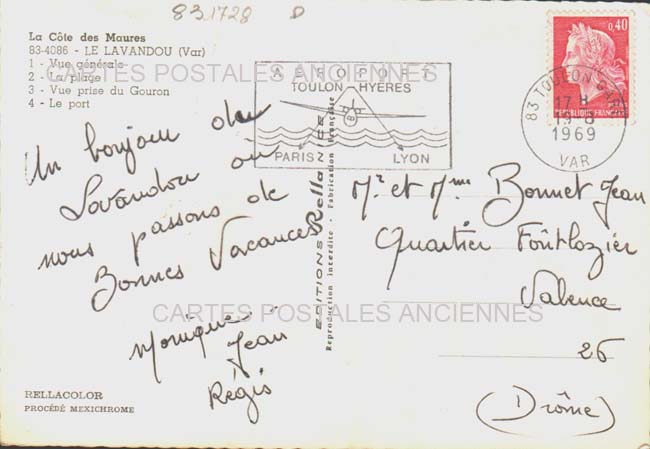 831728 D
La Côte des Maures
83-4086 - LE LAVANDOU (Var)
1 - Vue générale
2 - La plage
3 - Vue prise du Gouron
4 - Le port
CARTES POSTALES ANCIENNES
AEROPORT
TOULON HYÈRES
PARIS
LYON
0,40
REPUBLIQUE FRANCAISE
83 TOULON
17 H
19 - 8
1969
VAR
Un bonjour du
Lavandou où
nous passons de
Bonnes Vacances
Monique
Jean
Régis
EDITIONS Rella NICE
Reproduction interdite - Fabrication Française
Mr et Mme Bonnet Jean
Quartier Fontlozier
Valence
26
(Drôme)
CARTES POSTALES ANCIENNES
RELLACOLOR
PROCÉDÉ MEXICHROME